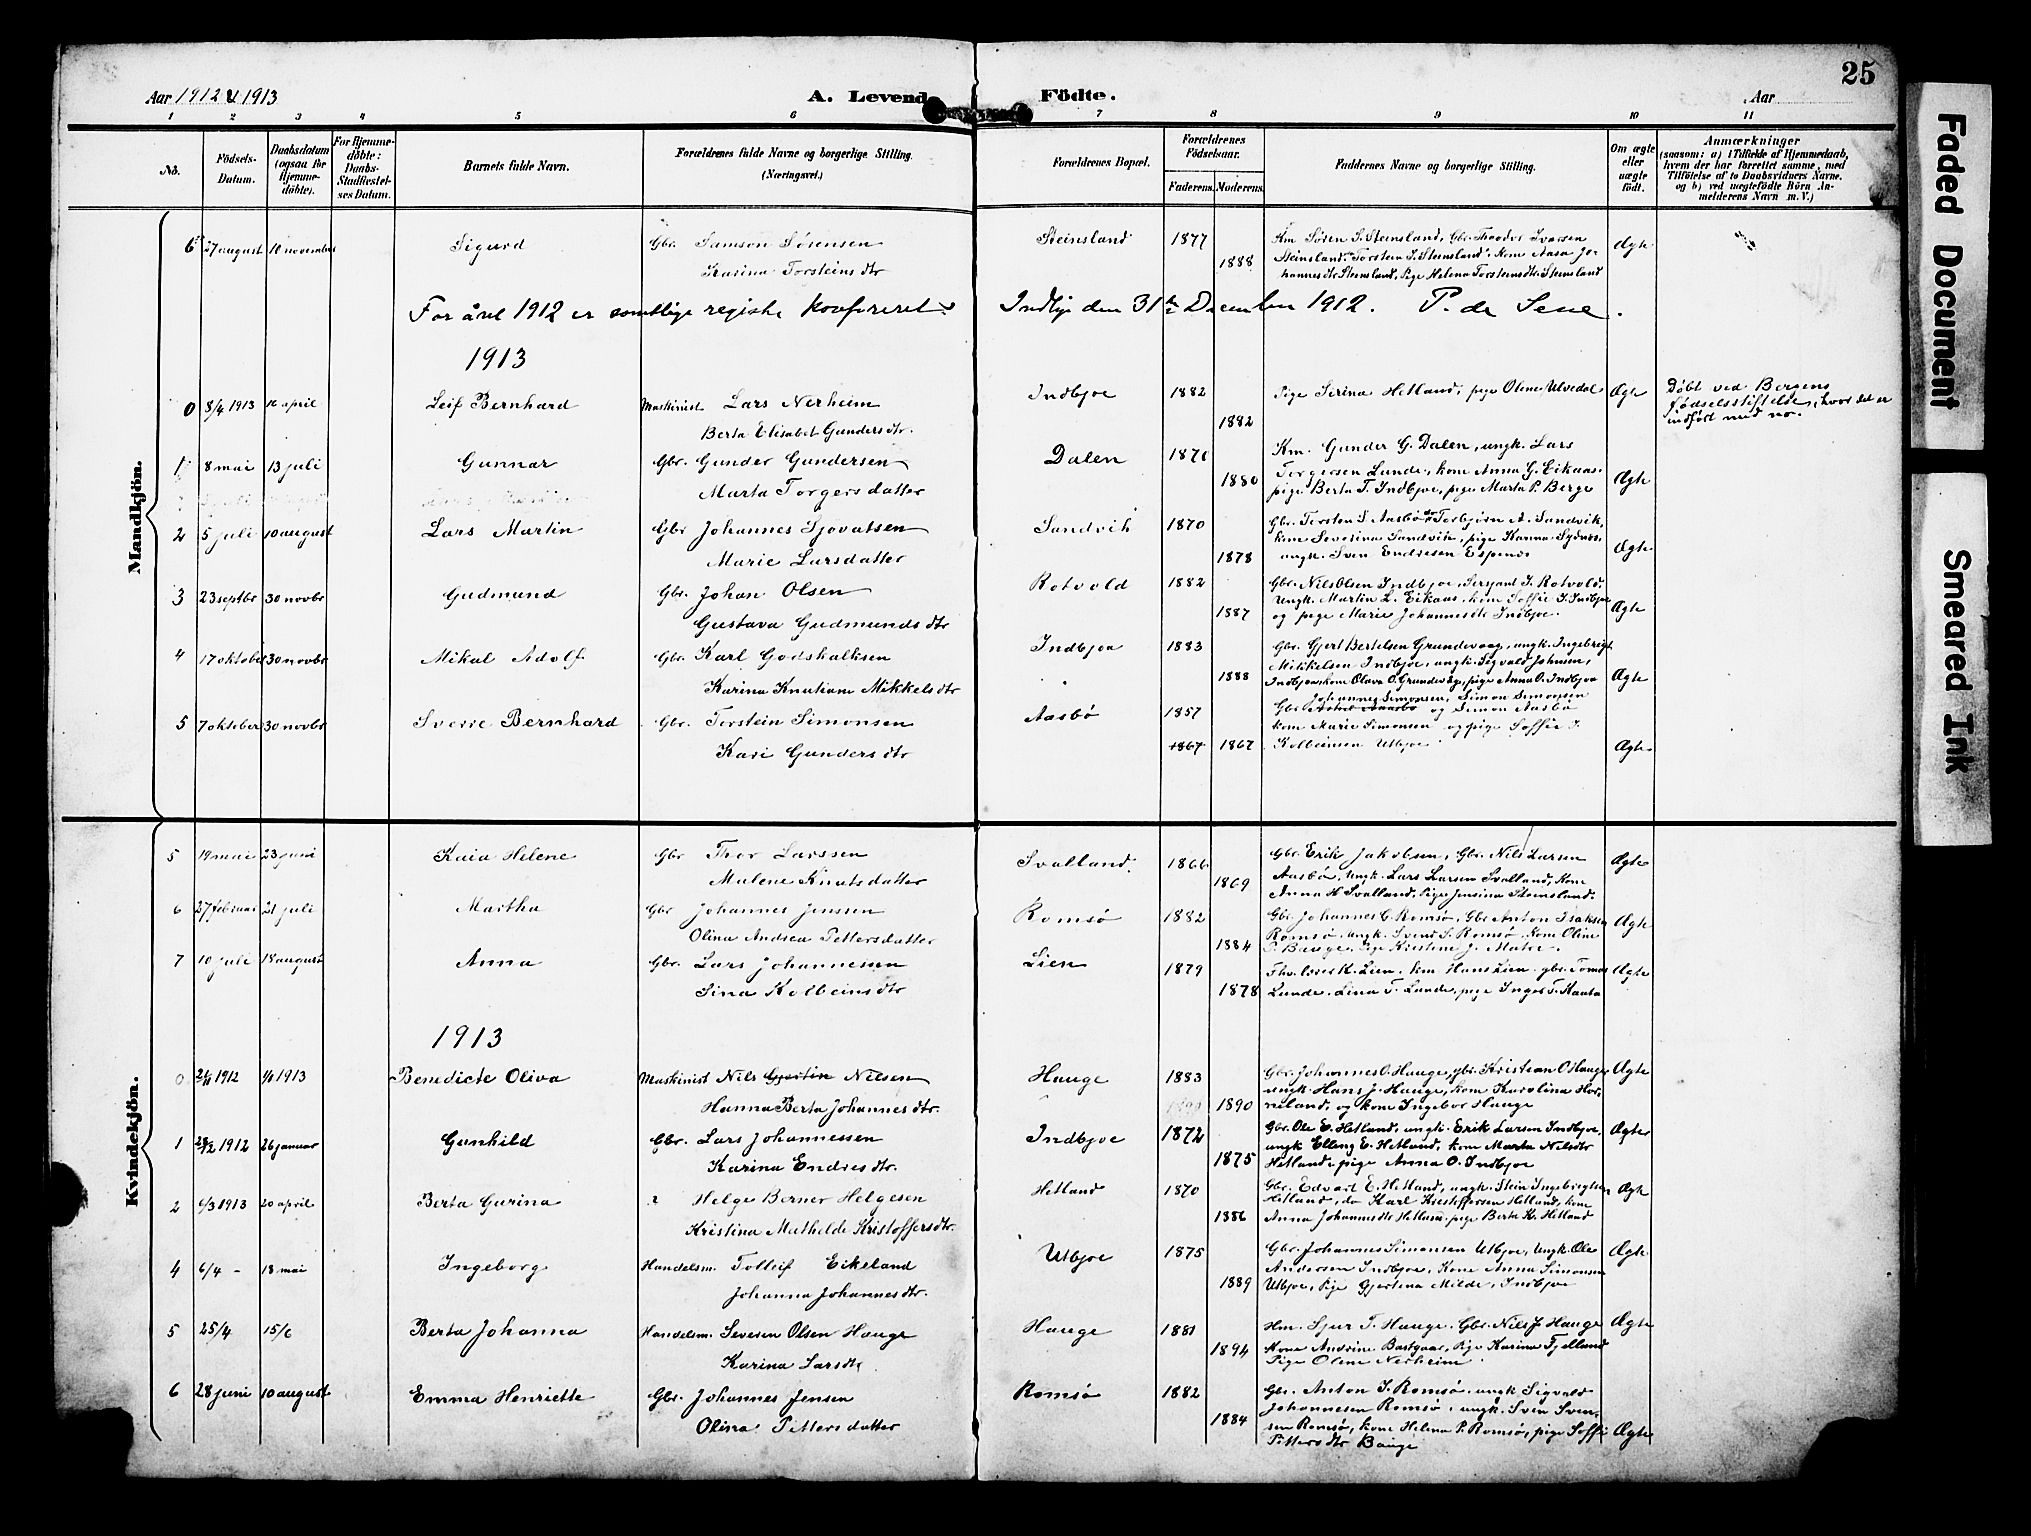 25
Aar 1912 & 1913
A. Levend Födte.
Aar
1 2 3 4 5 6 7 8 9 10 11
No.
Födsels-Datum.
Daabsdatum (ogsaa för Hjemme-döbte).
For Hjemme-döbte: Daabs-Stadfæstel-ses Datum.
Barnets fulde Navn.
Forældrenes fulde Navne og borgerlige Stilling. (Næringsvei.)
Forældrenes Bopæl.
Forældrenes Födselsaar.
Faderens. Moderens.
Faddernes Navne og borgerlige Stilling.
Om ægte eller uægte födt.
Anmærkninger
(saasom: a) i Tilfælde af Hjemmedaab, hvem der har forrettet samme, med Tilföielse af to Daabsvidners Navne, og b) ved uægtefödte Börn An-melderens Navn m. V.)
Mandkjön.
6 27 august 10 november Sigurd Gbr. Samson Sørensen Steinsland 1877 Km Søren S. Steinsland, Gbr. Thoodor Ivarsen Ægte
Karina Torsteins dtr 1888 Steinsland, Torstein S. Steinsland, Kone Aasa Jo-
hannes dtr Steinsland, Pige Helena Torsteinsdtr Steinsland
For året 1912 er samtlige registre konfereret. Indbjo den 31te December 1912. P. de Seue.
1913
0 8/4 1913 10 april Leif Bernhard Maskinist Lars Nerheim Indbjoe 1882 Pige Serina Hetland, pige Oline Ulvedal Ægte Døbt ved Bergens
Berta Elisabet Gunders dtr. 1882 fødselsstiftelse, hvor det er
indført med no.
1 8 mai 13 juli Gunnar Gbr. Gunder Gundersen Dalen 1871 Km. Gunder G. Dalen, ungk. Lars
Marta Torgersdatter 1880 Torgersen Lunde, kone Anna G. Eikaas, Ægte
pige Berta T. Indbjoe, pige Marta P. Berge
2 5 juli 10 august Lars Martin Gbr Johannes Sjovatsen Sandvik 1870 Gbr. Torsten S. Aasbø do Torbjørn A. Sandvik,
Marie Larsdatter 1878 kone Severina Sandvik, pige Hanna Sydnes,
ungk. Sven Endresen Espenes Ægte
3 23 septbr 30 novbr Gudmund Gbr. Johan Olsen Rotvold 1882 Gbr. Nils Olsen Indbjoe, Sersjant J. Rotvold
Gustava Gudmunds dtr 1887 Ungk. Martin L. Eikaas, kone Soffie J. Indbjoe
og pige Marie Johannesdtr Indbjoe. Ægte
4 17 oktober 30 novbr Mikal Adolf Gbr. Karl Godskalksen Indbjoe 1883 Gbr. Gjert Bertelsen Grundevaag, ungk. Ingebrigt
Karina Knutiane Mikkels dtr 1888 Mikkelsen Indbjoe, ungk. Sigvald Johnsen,
Indbjoe, kone Olava O. Grundevåg, pige Anna O. Indbjoe Ægte
5 7 oktober 30 novbr Sverre Bernhard Gbr. Torstein Simonsen Aasbö 1857 Johannes Simonsen, Simon Simonsen
Gbr. og Simon Aasbö
kone Marie Simonsen og pige Soffie J.
Kari Gunders dtr 1867 1867 Kolbeinsen Utbjoe Ægte
Kvindekjön.
5 19 mai 23 juni Kaia Helene Gbr Thor Larssen Svalland. 1866 Gbr. Erik Jakobsen, Gbr. Nils Larsen Ægte
Malene Knutsdatter 1869 Aasbø, Ungk. Lars Larsen Svalland, Kone
Anna H Svalland, Pige Jensina Steinsland
6 27 februar 21 juli Martha Gbr Johannes Jenssen Romsø 1882 Gbr. Johannes C. Romsø, Gbr Anton Isaksen Ægte
Olina Andrea Pettersdatter 1884 Romsø, ungk. Svend S. Romsø, Kone Oline
P. Bauge, Pige Kristine J. Matre.
7 10 juli 18 august Anna Gbr. Lars Johannessen Lien 1879 Lien, km Hans Lien, gbr. Tomas Ægte
Sina Kolbeinsdtr 1878 Lunde, Lina T. Lunde, pige Inger T. Kaata
1913
0 1912 1913 Benedicte Oliva Maskinist Nils Gjertin Nilsen Hauge 1883 Gbr. Johannes O. Hauge, gbr. Kristian O Hauge Ægte
Hanna Berta Johannes dtr. 1890 ungk. Hans J. Hauge, kone Karolina Hor-
neland, og kone Ingebor Hauge
1 28/12 1912 26 januar Gunhild Gbr. Lars Johannessen Indbjoe 1872 Gbr. Ole E. Hetland, ungk. Erik Larsen Indbjoe, Ægte
Karina Endres dtr. 1875 ungk Elling E. Hetland, kone Marta Nilsdtr
Hetland, pige Anna O. Indbjoe
2 6/3 1913 20 april Berta Gurina Helge Berner Helgesen Hetland 1870 Gbr. Edvart E. Hetland, ungk. Stein Ingebrigtsen Ægte
Kristina Mathilde Kristoffersdtr. 1886 Hetland, do Karl Kristoffersen Hetland, kone
Anna Johannesdtr Hetland, pige Berta K. Hetland
4 6/4 - 18 mai Ingeborg Handelsm. Tolleif Eikeland Utbjoe 1875 Gbr. Johannes Simonsen Utbjoe, Ungk. Ole Ægte
Johanna Johannes dtr. 1889 Andersen Indbjoe, Kone Anna Simonsen
Utbjoe, Pige Gjertina Milde, Indbjoe
5 25/4 15/6 Berta Johanna Handelsm. Severin Olsen Hauge Hauge 1881 Hm. Sjur T. Hauge, Gbr. Nils J. Hauge Ægte
Karina Larsdtr. 1894 Kone Andrine Bastgaar, Pige Karina Fjelland
Pige Oline Nerheim
6 28 juni 10 august Emma Henriette Gbr. Johannes Jensen Romsø 1882 Gbr. Anton I. Romsø, ungk Sigvald
Olina Pettersdatter 1884 Johannesen Romsø, ungk. Sven Sven-
sen Romsø, kone Helena P. Romsø, pige Soffi Ægte
Pettersdtr Bauge
Faded Document
Smeared Ink